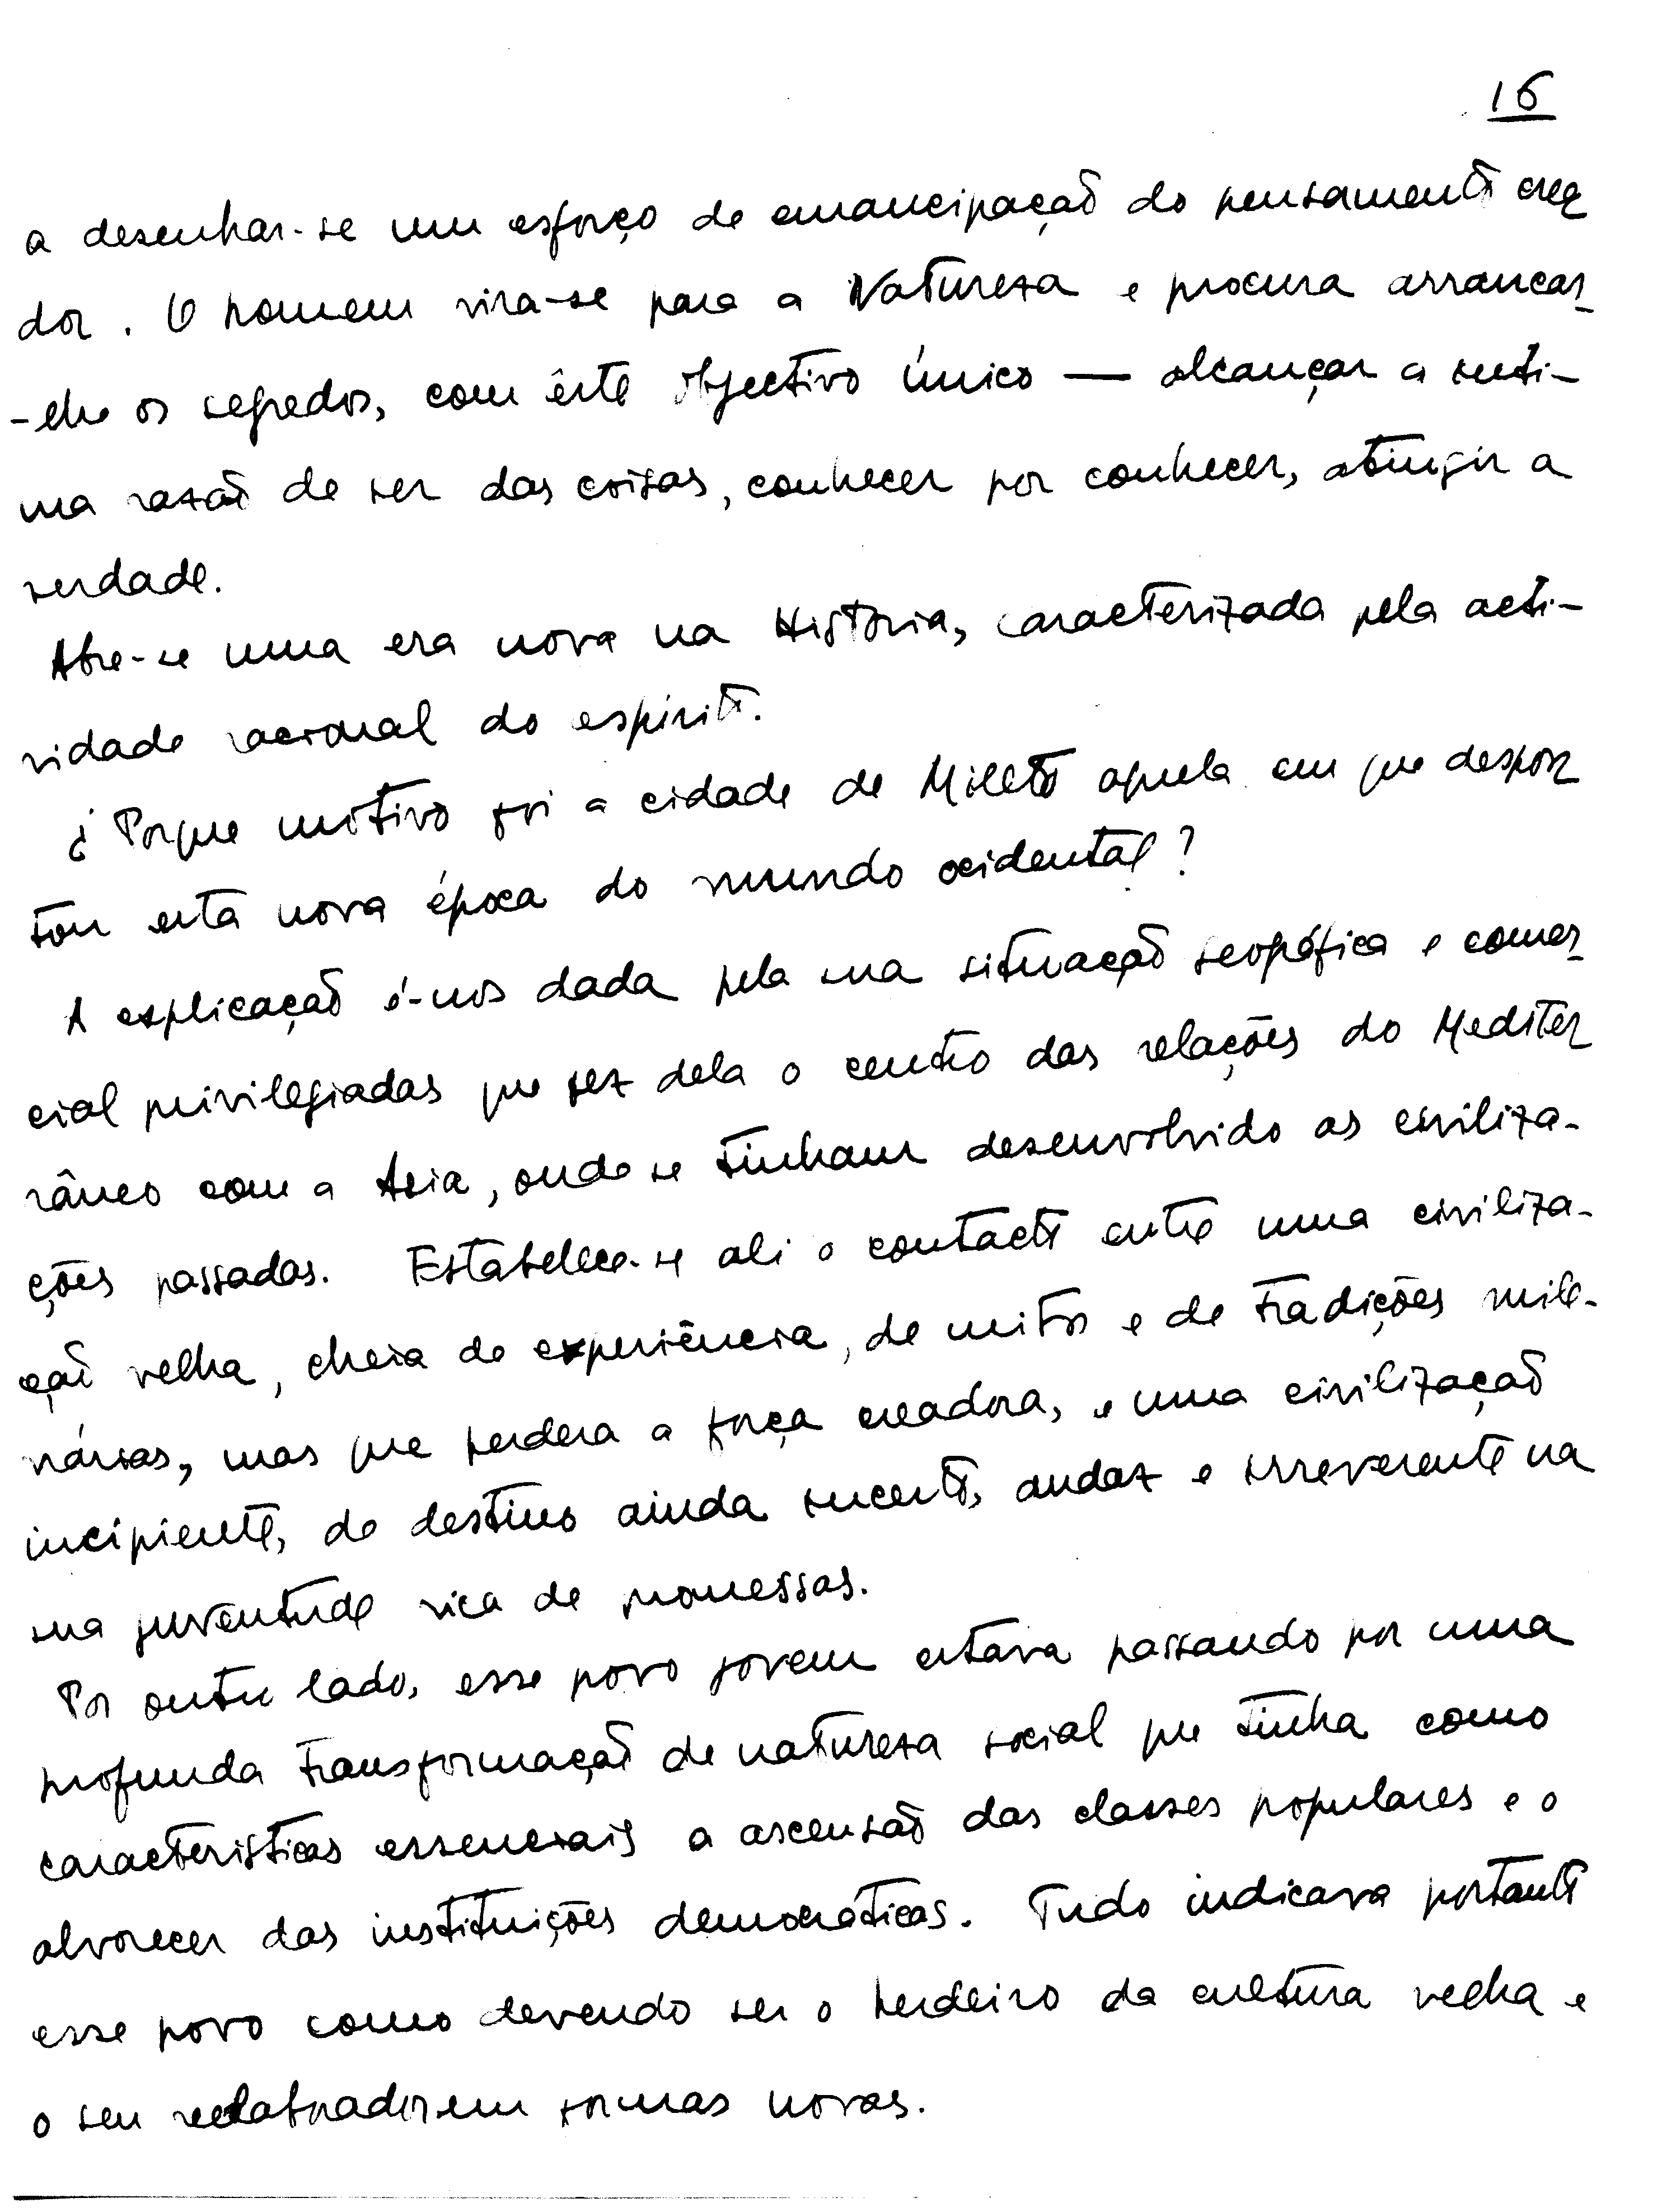 16
a desenhar-se um esforço de emancipação do pensamento crea
dor. O homem vira-se para a Natureza e procura arrancar-
-lhe os segredos, com êste objectivo único — alcançar a inti-
ma razão de ser das coisas, conhecer por conhecer, atingir a
verdade.
Abre-se uma era nova na História, caracterizada pela acti-
vidade racional do espírito.
¿ Porque motivo foi a cidade de Mileto aquela em que despon
tou esta nova época do mundo ocidental?
A explicação é-nos dada pela sua situação geográfica e comer-
cial privilegiadas que fez dela o centro das relações do Mediter
râneo com a Asia, onde se tinham desenvolvido as civiliza-
ções passadas. Estabelece-se ali o contacto entre uma civiliza-
ção velha, cheia de experiência, de mitos e de tradições mile-
nárias, mas que perdera a força creadora, e uma civilização
incipiente, de destino ainda incerto, audaz e irreverente na
sua juventude rica de promessas.
Por outro lado, esse povo jovem estava passando por uma
profunda transformação de natureza social que tinha como
caracteristicas essenciais a ascensão das classes populares e o
alvorecer das instituições democráticas. Tudo indicava portanto
esse povo como devendo ser o herdeiro da cultura velha e
o seu reelaborador em formas novas.